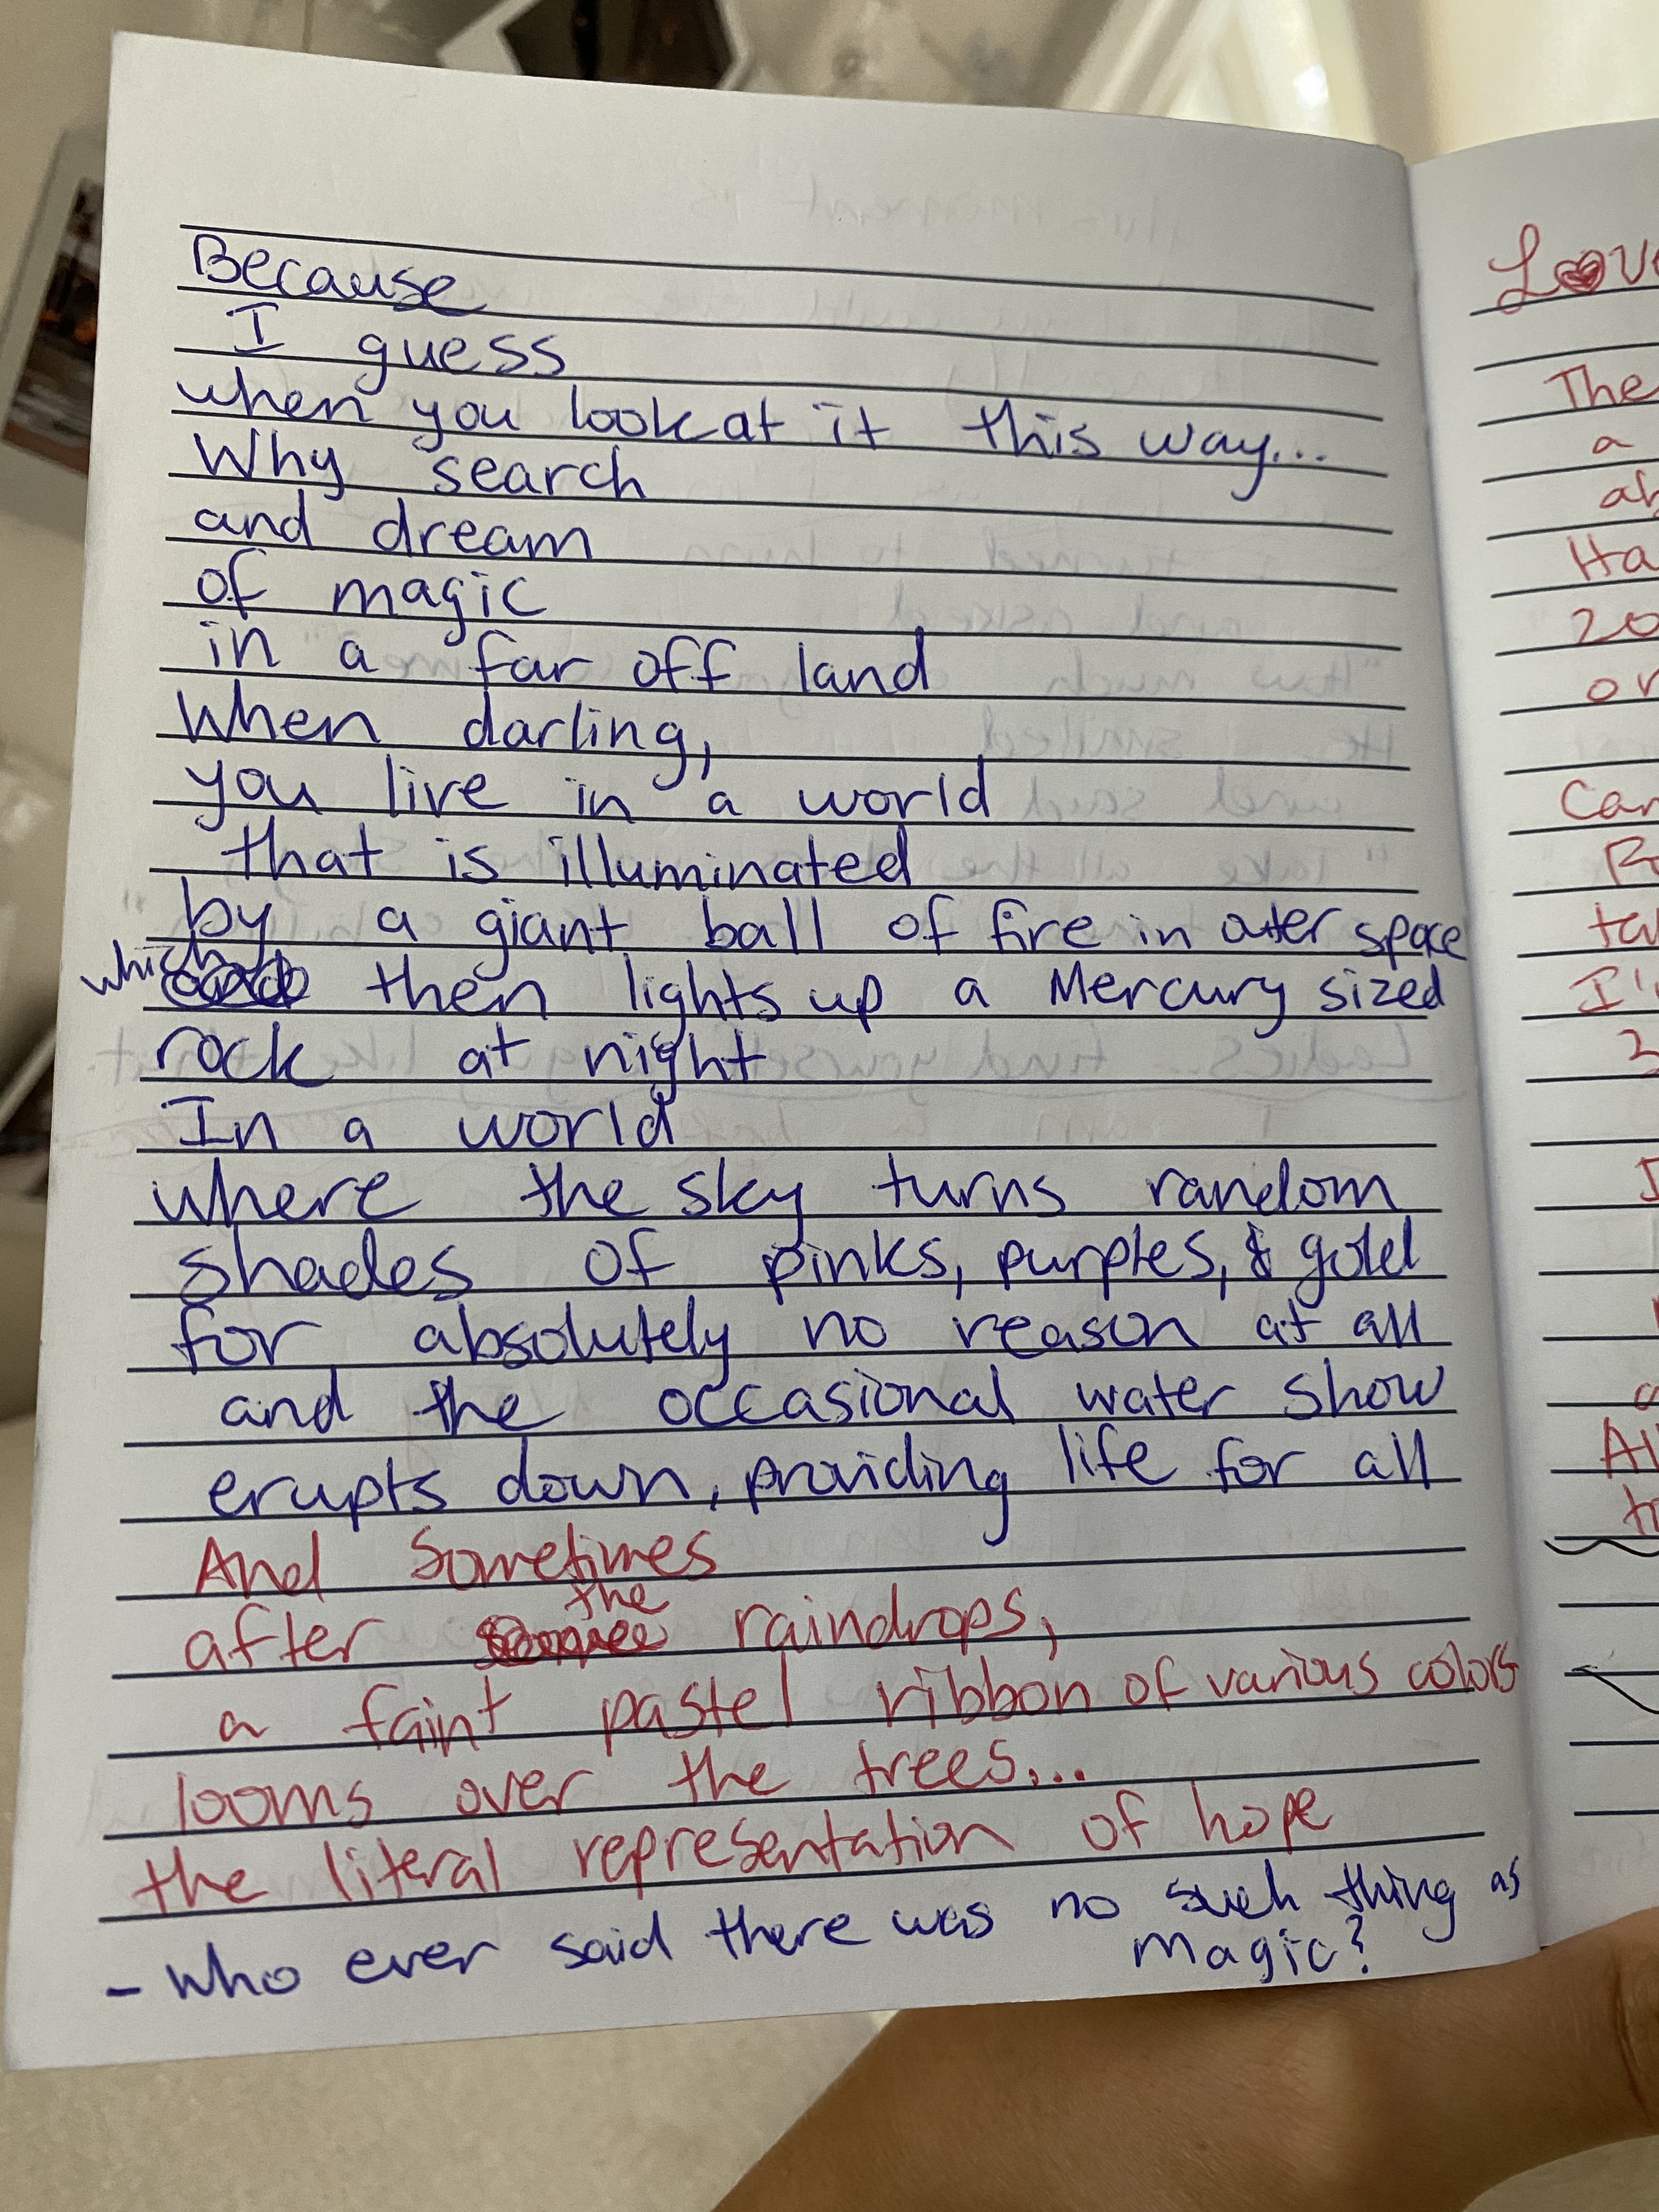 Because
I guess
when you look at it this way...
Why search
and dream
of magic
in a far off land
When darling,
you live in a world
that is illuminated
by a giant ball of fire in outer space
which then lights up a Mercury sized
rock at night
In a world
where the sky turns random
shades of pinks, purples, & gold
for absolutely no reason at all
and the occasional water show
erupts down, providing life for all
And Sometimes
after the raindrops,
a faint pastel ribbon of various colors
looms over the trees...
the literal representation of hope
- who ever said there was no such thing as
magic?
The
a